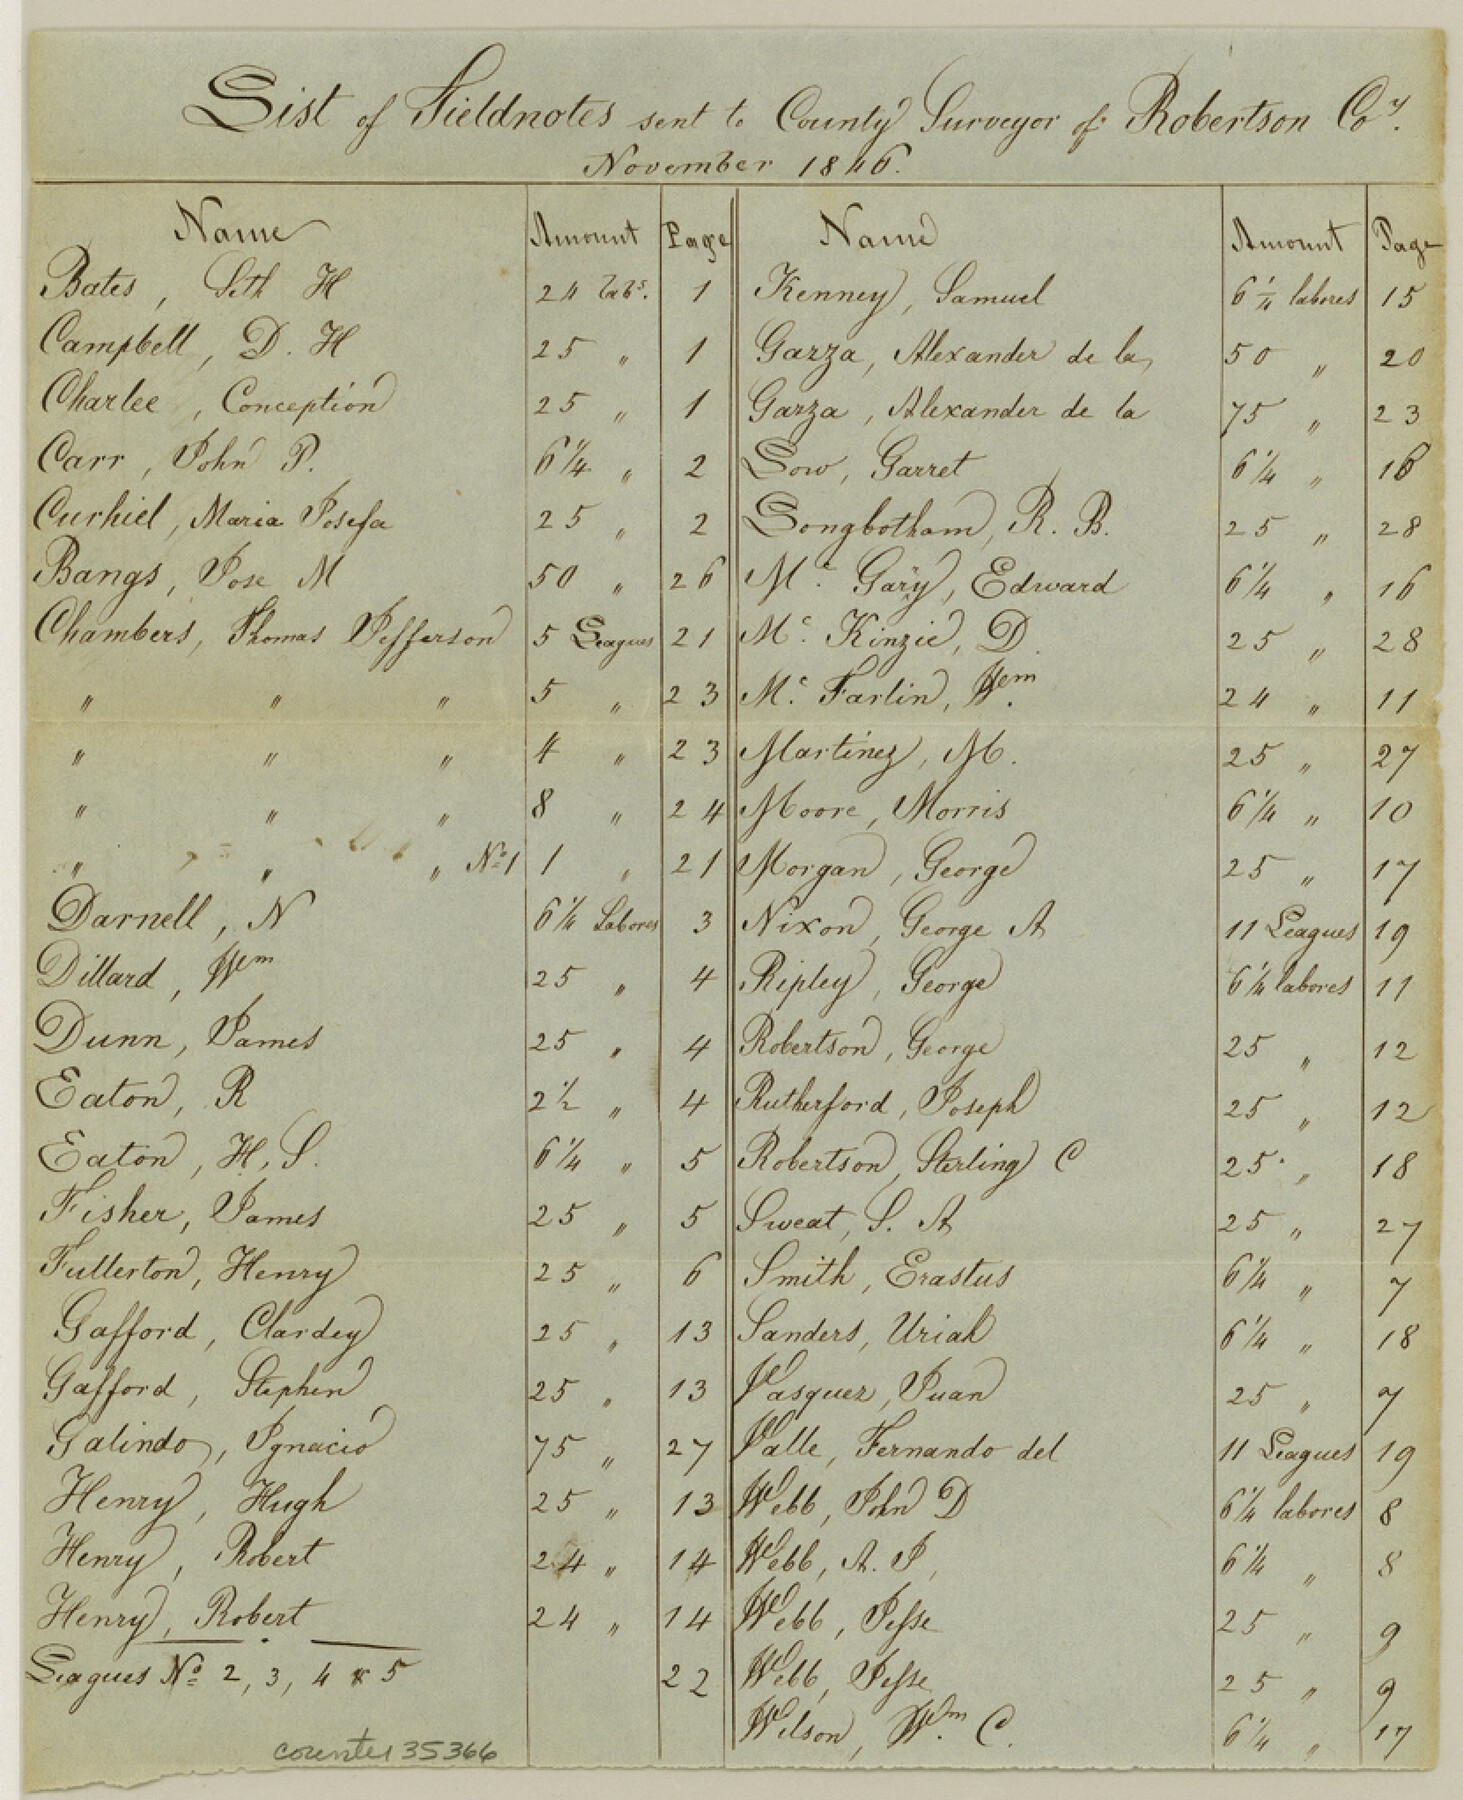 List of Fieldnotes sent to County Surveyor of Robertson Coy.
November 1846.
Name Amount Page Name Amount Page
Bates, Seth H 24 labs. 1 Kenney, Samuel 6 1/4 labores 15
Campbell, D. H 25 " 1 Garza, Alexander de la, 50 " 20
Charlee, Conception 25 " 1 Garza, Alexander de la 75 " 23
Carr, John P. 6 1/4 " 2 Low, Garret 6 1/4 " 16
Curhiel, Maria Josefa 25 " 2 Longbotham, R. B. 25 " 28
Bangs, Jose M 50 " 26 Mc. Gary, Edward 6 1/4 " 16
Chambers, Thomas Jefferson 5 Leagues 21 Mc. Kinzie, D. 25 " 28
" " " 5 " 23 Mc. Farlin, Wm. 24 " 11
" " " 4 " 23 Martinez, M. 25 " 27
" " " 8 " 24 Moore, Morris 6 1/4 " 10
" " " No 1 1 " 21 Morgan, George 25 " 17
Darnell, N 6 1/4 Labores 3 Nixon, George A 11 Leagues 19
Dillard, Wm 25 " 4 Ripley, George 6 1/4 labores 11
Dunn, James 25 " 4 Robertson, George 25 " 12
Eaton, R 2 1/2 " 4 Rutherford, Joseph 25 " 12
Eaton, H. S. 6 1/4 " 5 Robertson, Sterling C 25 " 18
Fisher, James 25 " 5 Sweat, S. A 25 " 27
Fullerton, Henry 25 " 6 Smith, Erastus 6 1/4 " 7
Gafford, Clardey 25 " 13 Sanders, Uriah 6 1/4 " 18
Gafford, Stephen 25 " 13 Vasquez, Juan 25 " 7
Galindo, Ignacio 75 " 27 Valle, Fernando del 11 Leagues 19
Henry, Hugh 25 " 13 Webb, John D 6 1/4 labores 8
Henry, Robert 24 " 14 Webb, A. J, 6 1/4 " 8
Henry, Robert 24 " 14 Webb, Jesse 25 " 9
Leagues No 2, 3, 4 & 5 22 Webb, Jesse 25 " 9
Wilson, Wm. C. 6 1/4 " 17
counter 35366